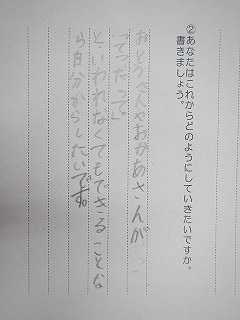 ②あなたはこれからどのようにしていきたいですか。
書きましょう。
おとうさんやおかあさんが「
てつだって。」
といわれなくてもできることな
ら自分からしたいです。